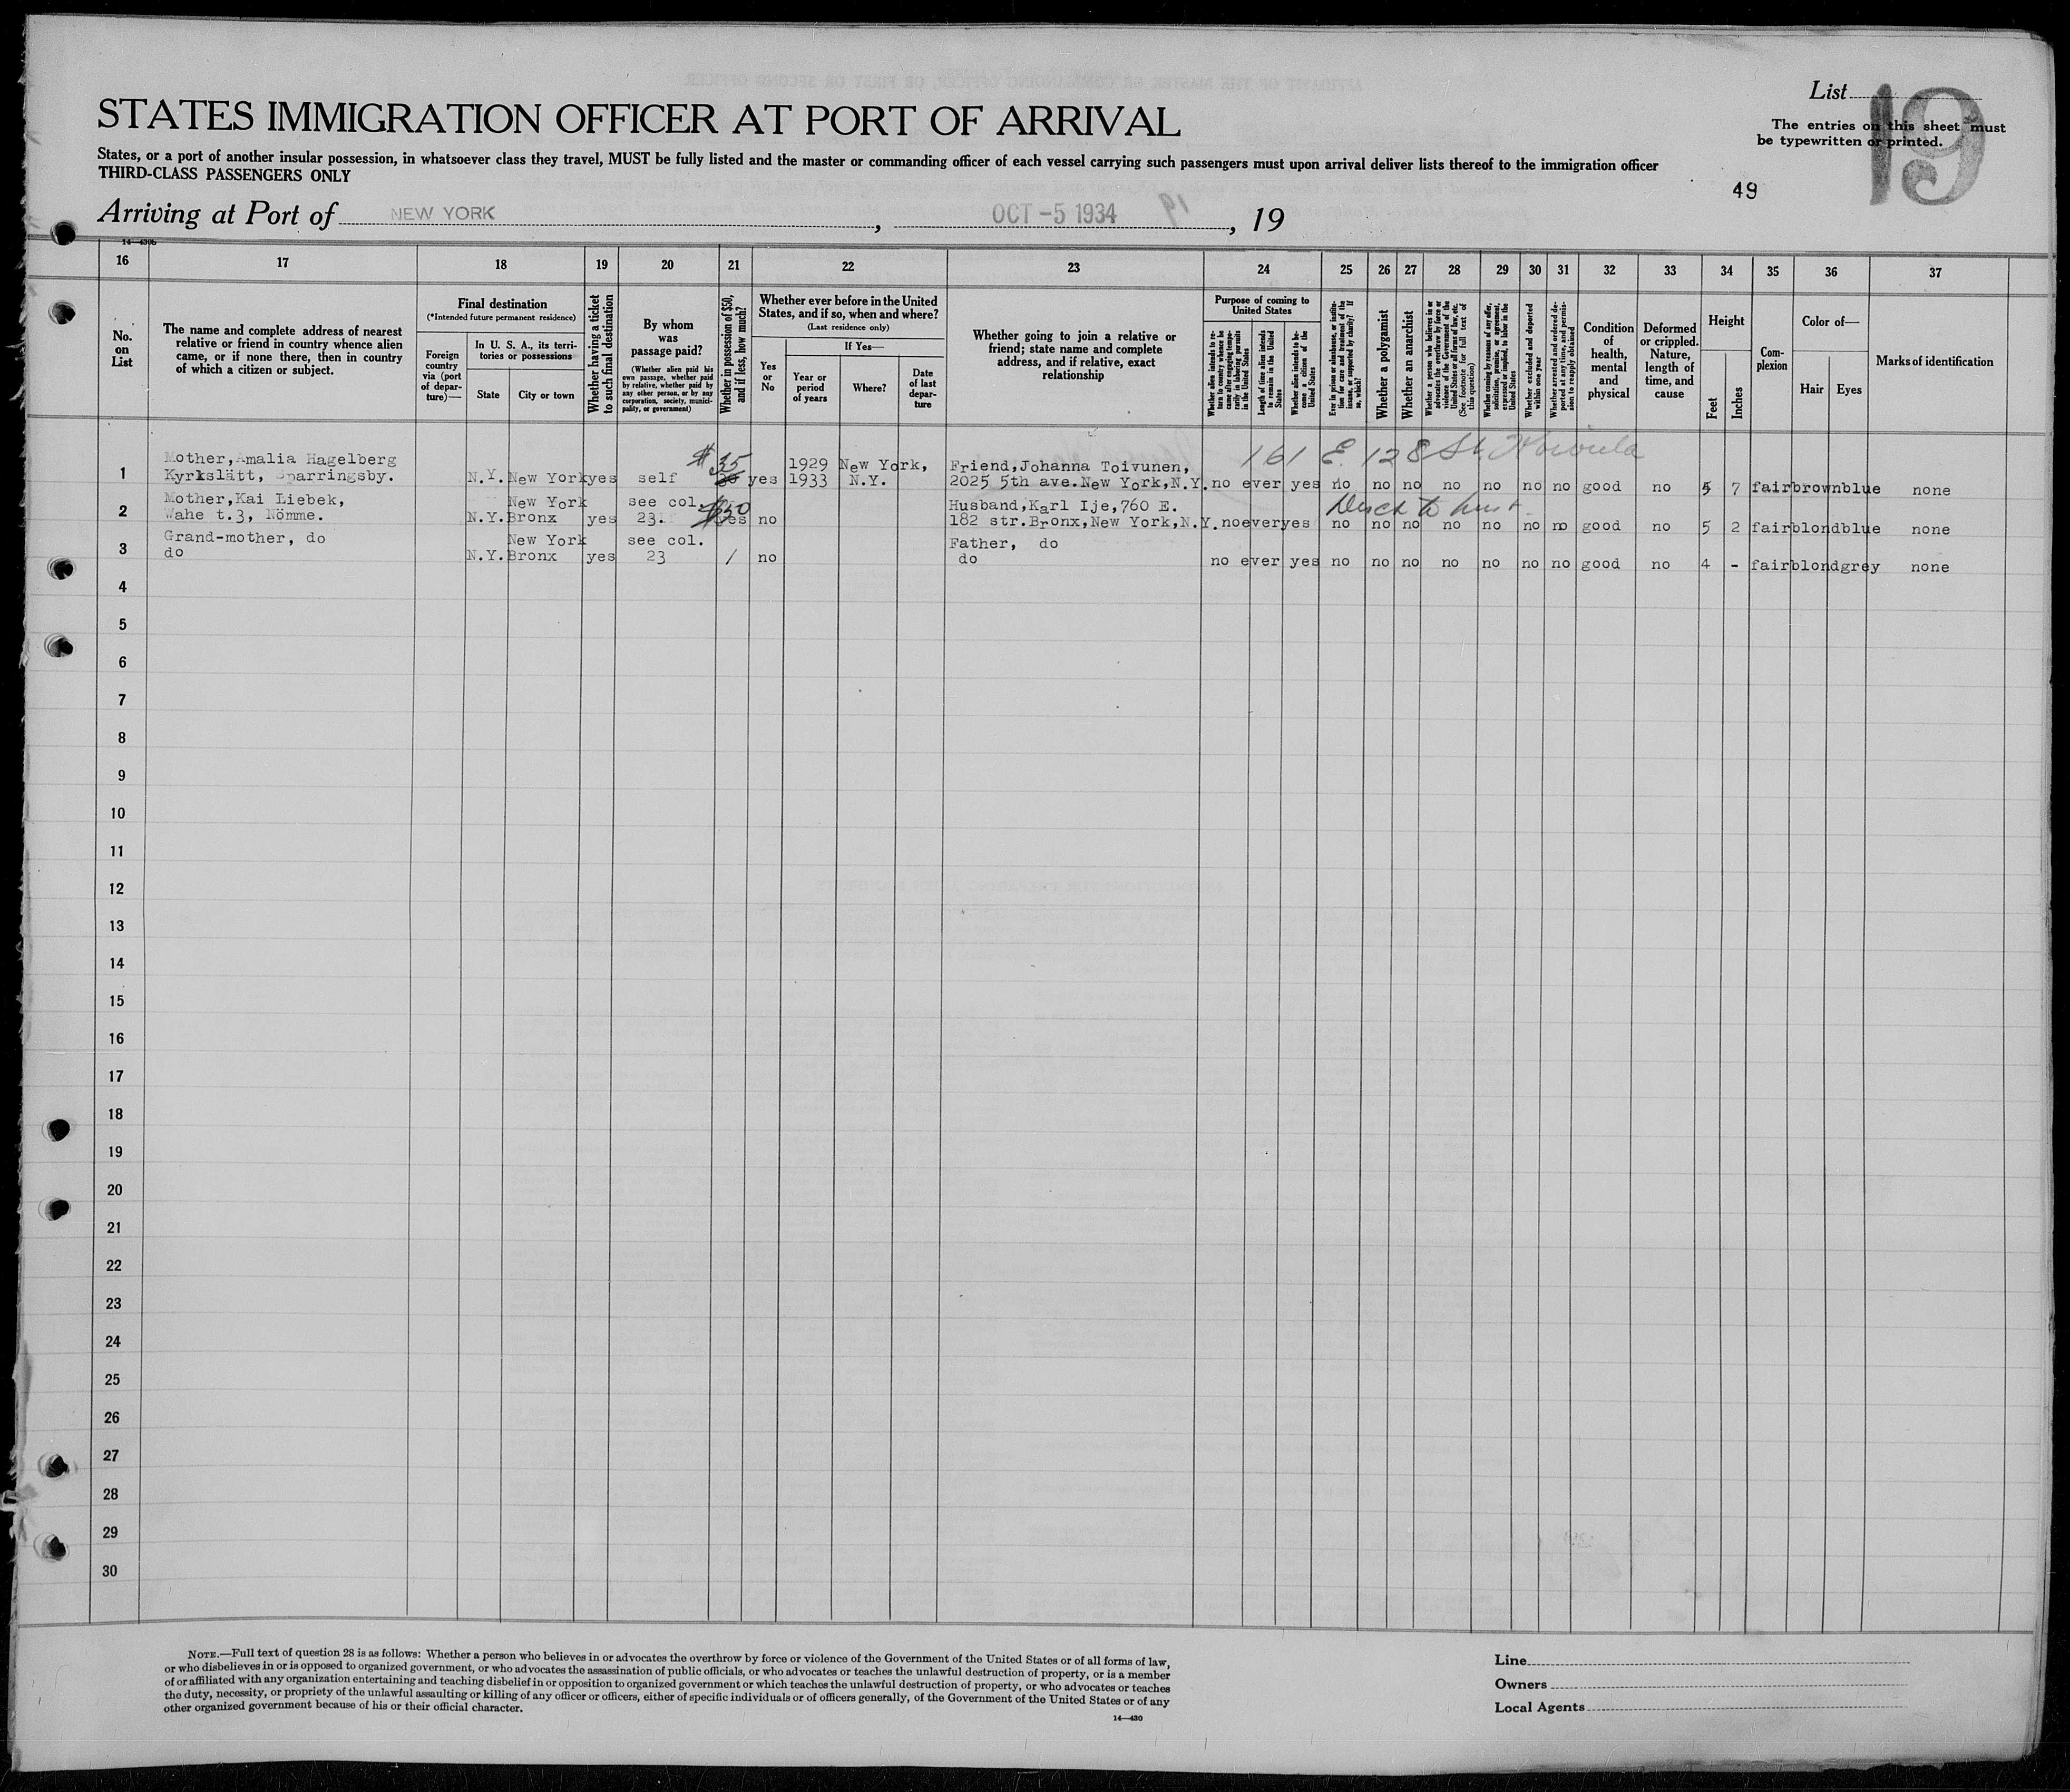 List 19
STATES IMMIGRATION OFFICER AT PORT OF ARRIVAL
The entries on this sheet must
be typewritten or printed.
States, or a port of another insular possession, in whatsoever class they travel, MUST be fully listed and the master or commanding officer of each vessel carrying such passengers must upon arrival deliver lists thereof to the immigration officer
THIRD-CLASS PASSENGERS ONLY
49
Arriving at Port of NEW YORK, OCT -5 1934, 19
14—430b
16 17 18 19 20 21 22 23 24 25 26 27 28 29 30 31 32 33 34 35 36 37
No.
on
List
The name and complete address of nearest
relative or friend in country whence alien
came, or if none there, then in country
of which a citizen or subject.
Final destination
(*Intended future permanent residence)
Foreign
country
via (port
of depar-
ture)—
In U. S. A., its terri-
tories or possessions
State City or town
Whether having a ticket
to such final destination
By whom
was
passage paid?
(Whether alien paid his
own passage, whether paid
by relative, whether paid by
any other person, or by any
corporation, society, munici-
pality, or government)
Whether in possession of $50,
and if less, how much?
Whether ever before in the United
States, and if so, when and where?
(Last residence only)
Yes
or
No
If Yes—
Year or
period
of years
Where?
Date
of last
depar-
ture
Whether going to join a relative or
friend; state name and complete
address, and if relative, exact
relationship
Purpose of coming to
United States
Whether alien intends to re-
turn to country whence he
came after engaging tempo-
rarily in laboring pursuits
in the United States
Length of time alien intends
to remain in the United
States
Whether alien intends to be-
come a citizen of the
United States
Ever in prison or almshouse, or institu-
tion for care and treatment of the
insane, or supported by charity? If
so, which?
Whether a polygamist
Whether an anarchist
Whether a person who believes in or
advocates the overthrow by force or
violence of the Government of the
United States or all forms of law, etc.
(See footnote for full text of
this question)
Whether coming by reasons of any offer,
solicitation, promise, or agreement,
expressed or implied, to labor in the
United States
Whether excluded and deported
within one year
Whether arrested and ordered de-
ported at any time, and permis-
sion to reapply obtained
Condition
of
health,
mental
and
physical
Deformed
or crippled.
Nature,
length of
time, and
cause
Height
Feet Inches
Com-
plexion
Color of—
Hair Eyes
Marks of identification
161 E. 128 St.
Mother, Amalia Hagelberg $35 1929 New York, Friend, Johanna Toivunen,
1 Kyrkslätt, Sparringsby. N.Y. New York yes self yes 1933 N.Y. 2025 5th ave. New York, N.Y. no ever yes no no no no no no no good no 5 7 fair brown blue none
Mother, Kai Liebek, New York see col. $50 Husband, Karl Ije, 760 E.
2 Wahe t.3, Nömme. N.Y. Bronx yes 23. yes no 182 str. Bronx, New York, N.Y. no ever yes no no no no no no no good no 5 2 fair blond blue none
Grand-mother, do New York see col. Father, do
3 do N.Y. Bronx yes 23 / no do no ever yes no no no no no no no good no 4 - fair blond grey none
4
5
6
7
8
9
10
11
12
13
14
15
16
17
18
19
20
21
22
23
24
25
26
27
28
29
30
NOTE.—Full text of question 28 is as follows: Whether a person who believes in or advocates the overthrow by force or violence of the Government of the United States or of all forms of law,
or who disbelieves in or is opposed to organized government, or who advocates the assassination of public officials, or who advocates or teaches the unlawful destruction of property, or is a member
of or affiliated with any organization entertaining and teaching disbelief in or opposition to organized government or which teaches the unlawful destruction of property, or who advocates or teaches
the duty, necessity, or propriety of the unlawful assaulting or killing of any officer or officers, either of specific individuals or of officers generally, of the Government of the United States or of any
other organized government because of his or their official character.
14—430
Line
Owners
Local Agents